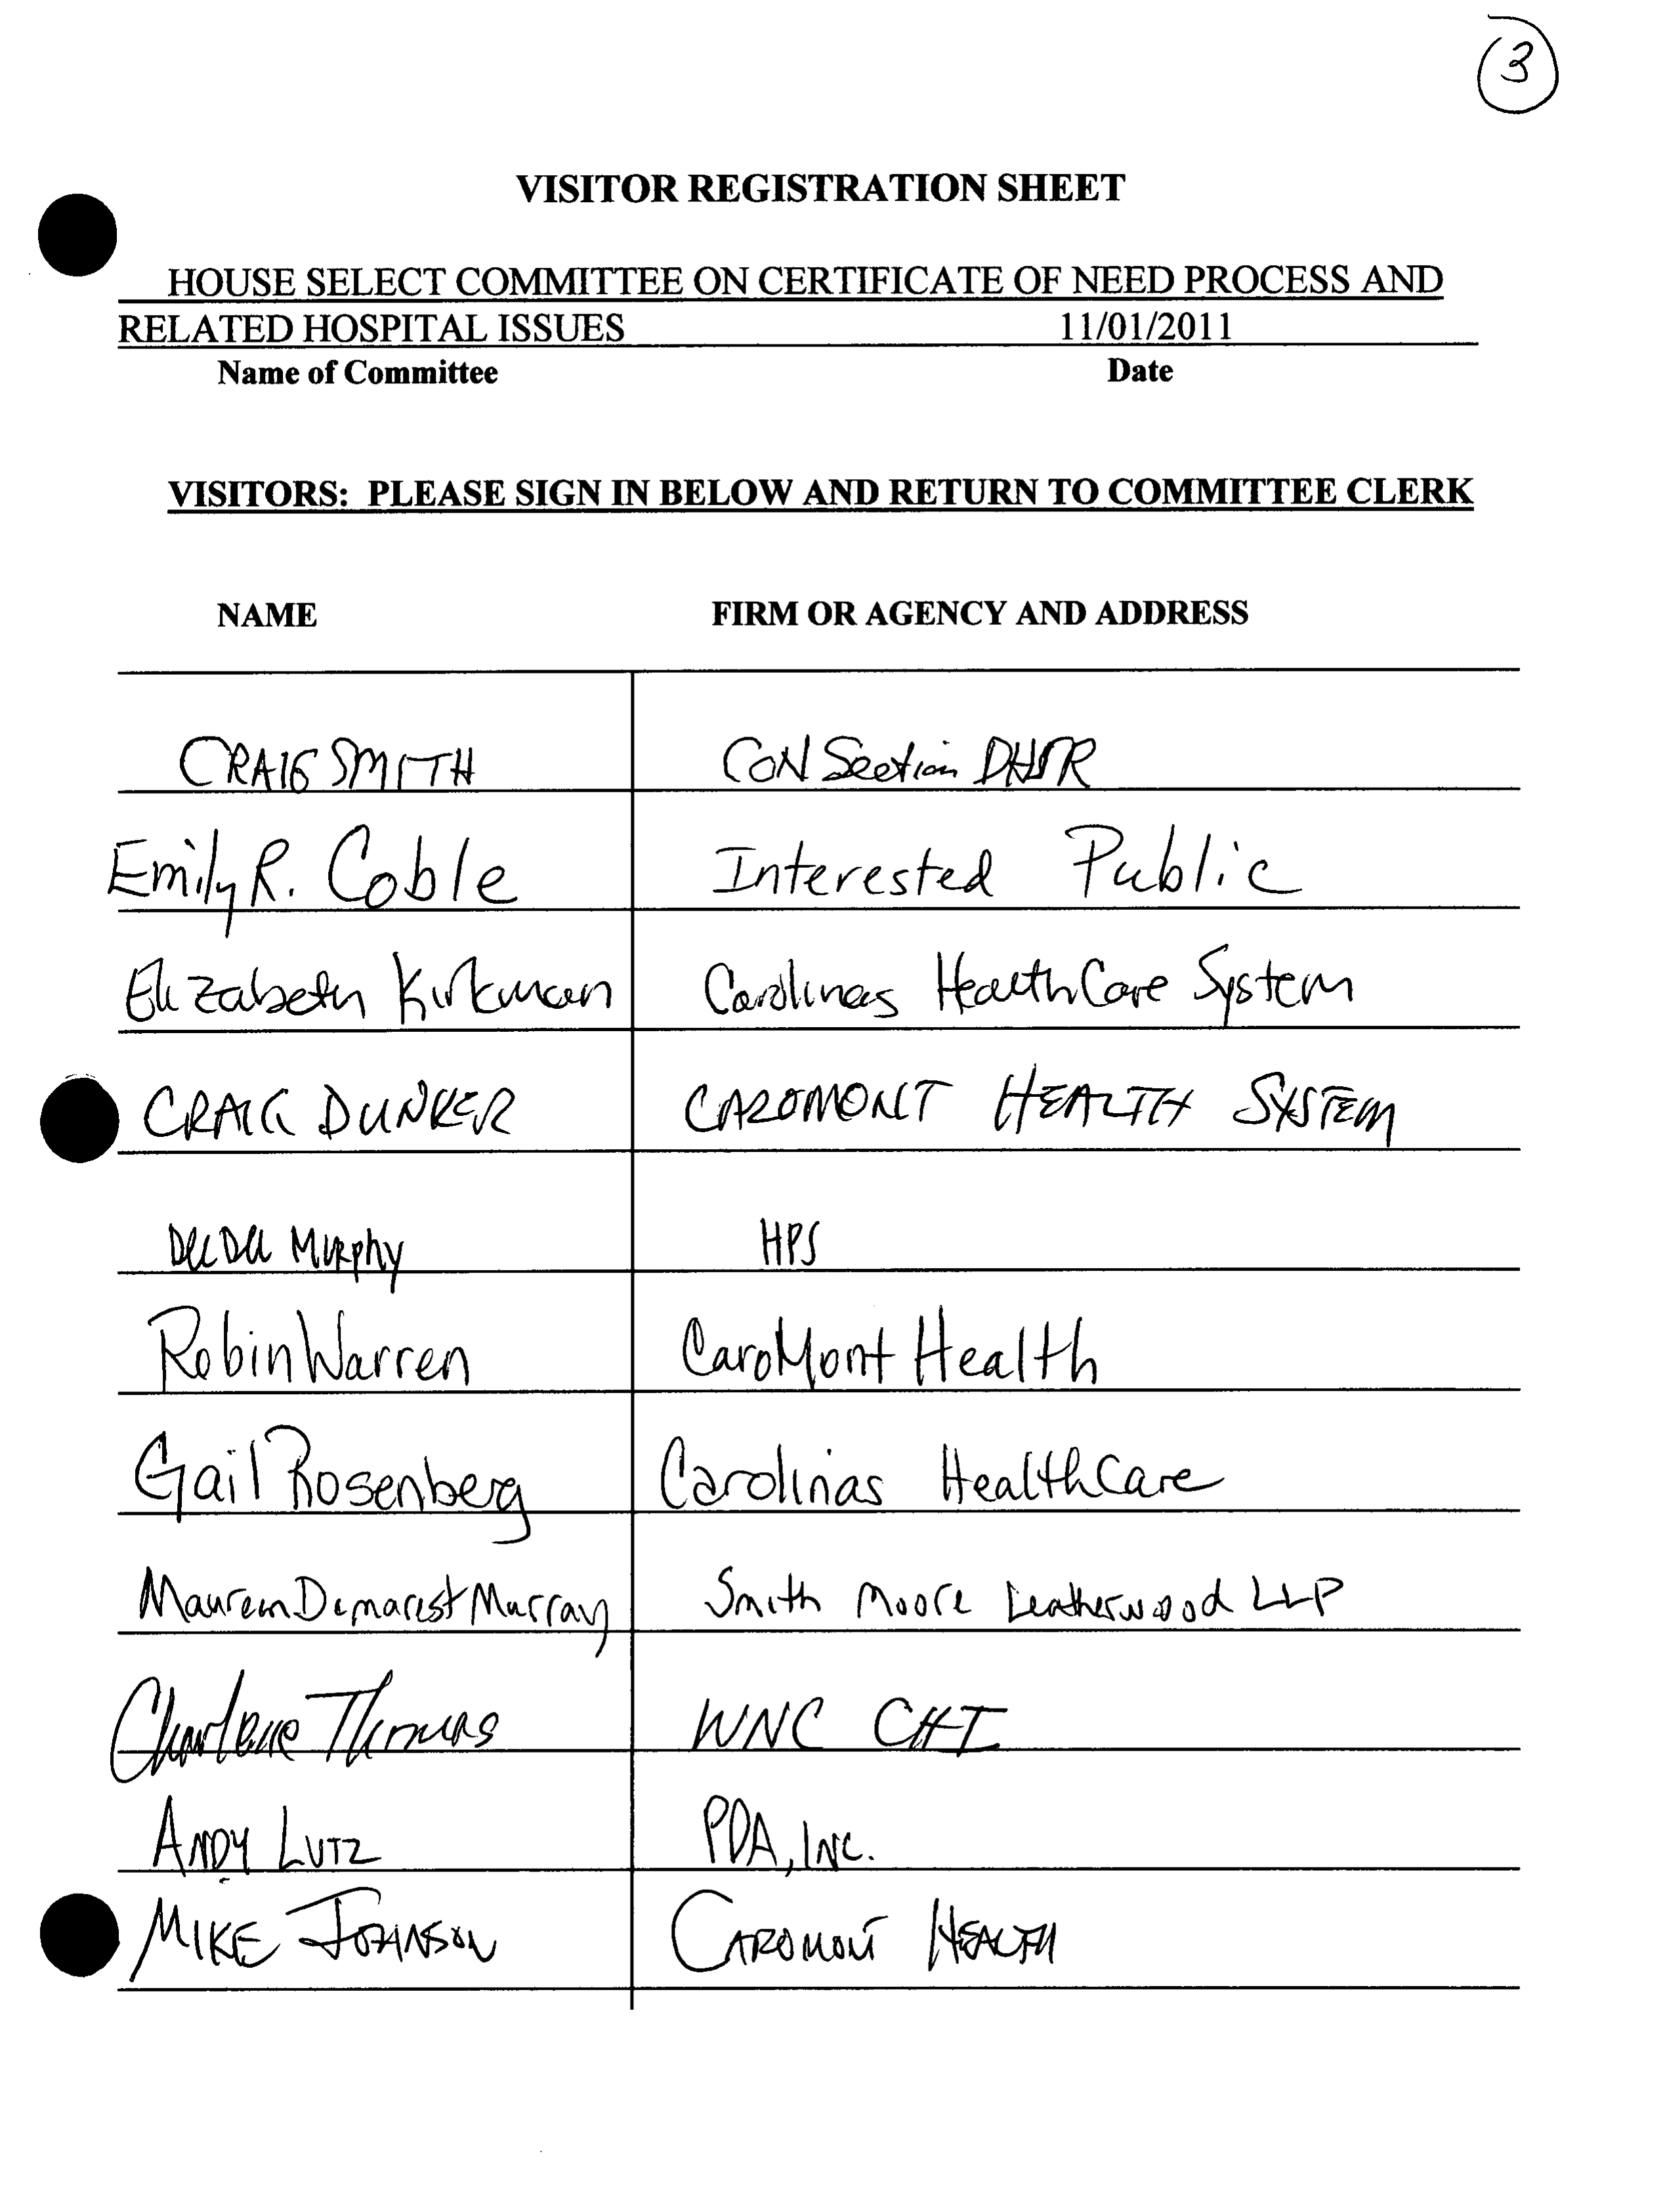 3
VISITOR REGISTRATION SHEET
HOUSE SELECT COMMITTEE ON CERTIFICATE OF NEED PROCESS AND
RELATED HOSPITAL ISSUES 11/01/2011
Name of Committee Date
VISITORS: PLEASE SIGN IN BELOW AND RETURN TO COMMITTEE CLERK
NAME FIRM OR AGENCY AND ADDRESS
CRAIG SMITH CON Section DHSR
Emily R. Coble Interested Public
Elizabeth Kirkman Carolinas HealthCare System
CRAIG DUNKER CAROMONT HEALTH SYSTEM
Dee Dee Murphy HPS
Robin Warren CaroMont Health
Gail Rosenberg Carolinas HealthCare
Maureen Demarest Murray Smith Moore Leatherwood LLP
Charlene Thomas WNC CHI
ANDY LUTZ PDA, INC.
MIKE JOHNSON CAROMONT HEALTH